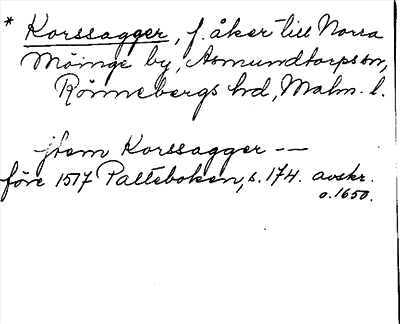 * Korssagger, f. åker till Norra
Möinge by, Asmundtorps sn,
Rönnebergs hd, Malm. l.
jtem Korssagger --
före 1517 Palteboken, s. 174. avskr.
o. 1650.